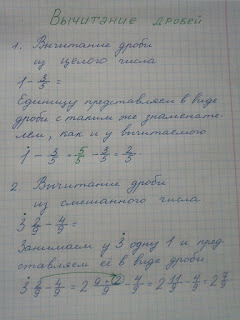 Вычитание дробей
1. Вычитание дроби
из целого числа
1 - 3/5 =
Единицу представляем в виде
дроби с таким же знаменате-
лем, как и у вычитаемого
1 - 3/5 = 5/5 - 3/5 = 2/5
2. Вычитание дроби
из смешанного числа
3 2/9 - 4/9 =
Занимаем у 3 одну 1 и пред-
ставляем её в виде дроби
3 2/9 - 4/9 = 2 9+2/9 - 4/9 = 2 11/9 - 4/9 = 2 7/9